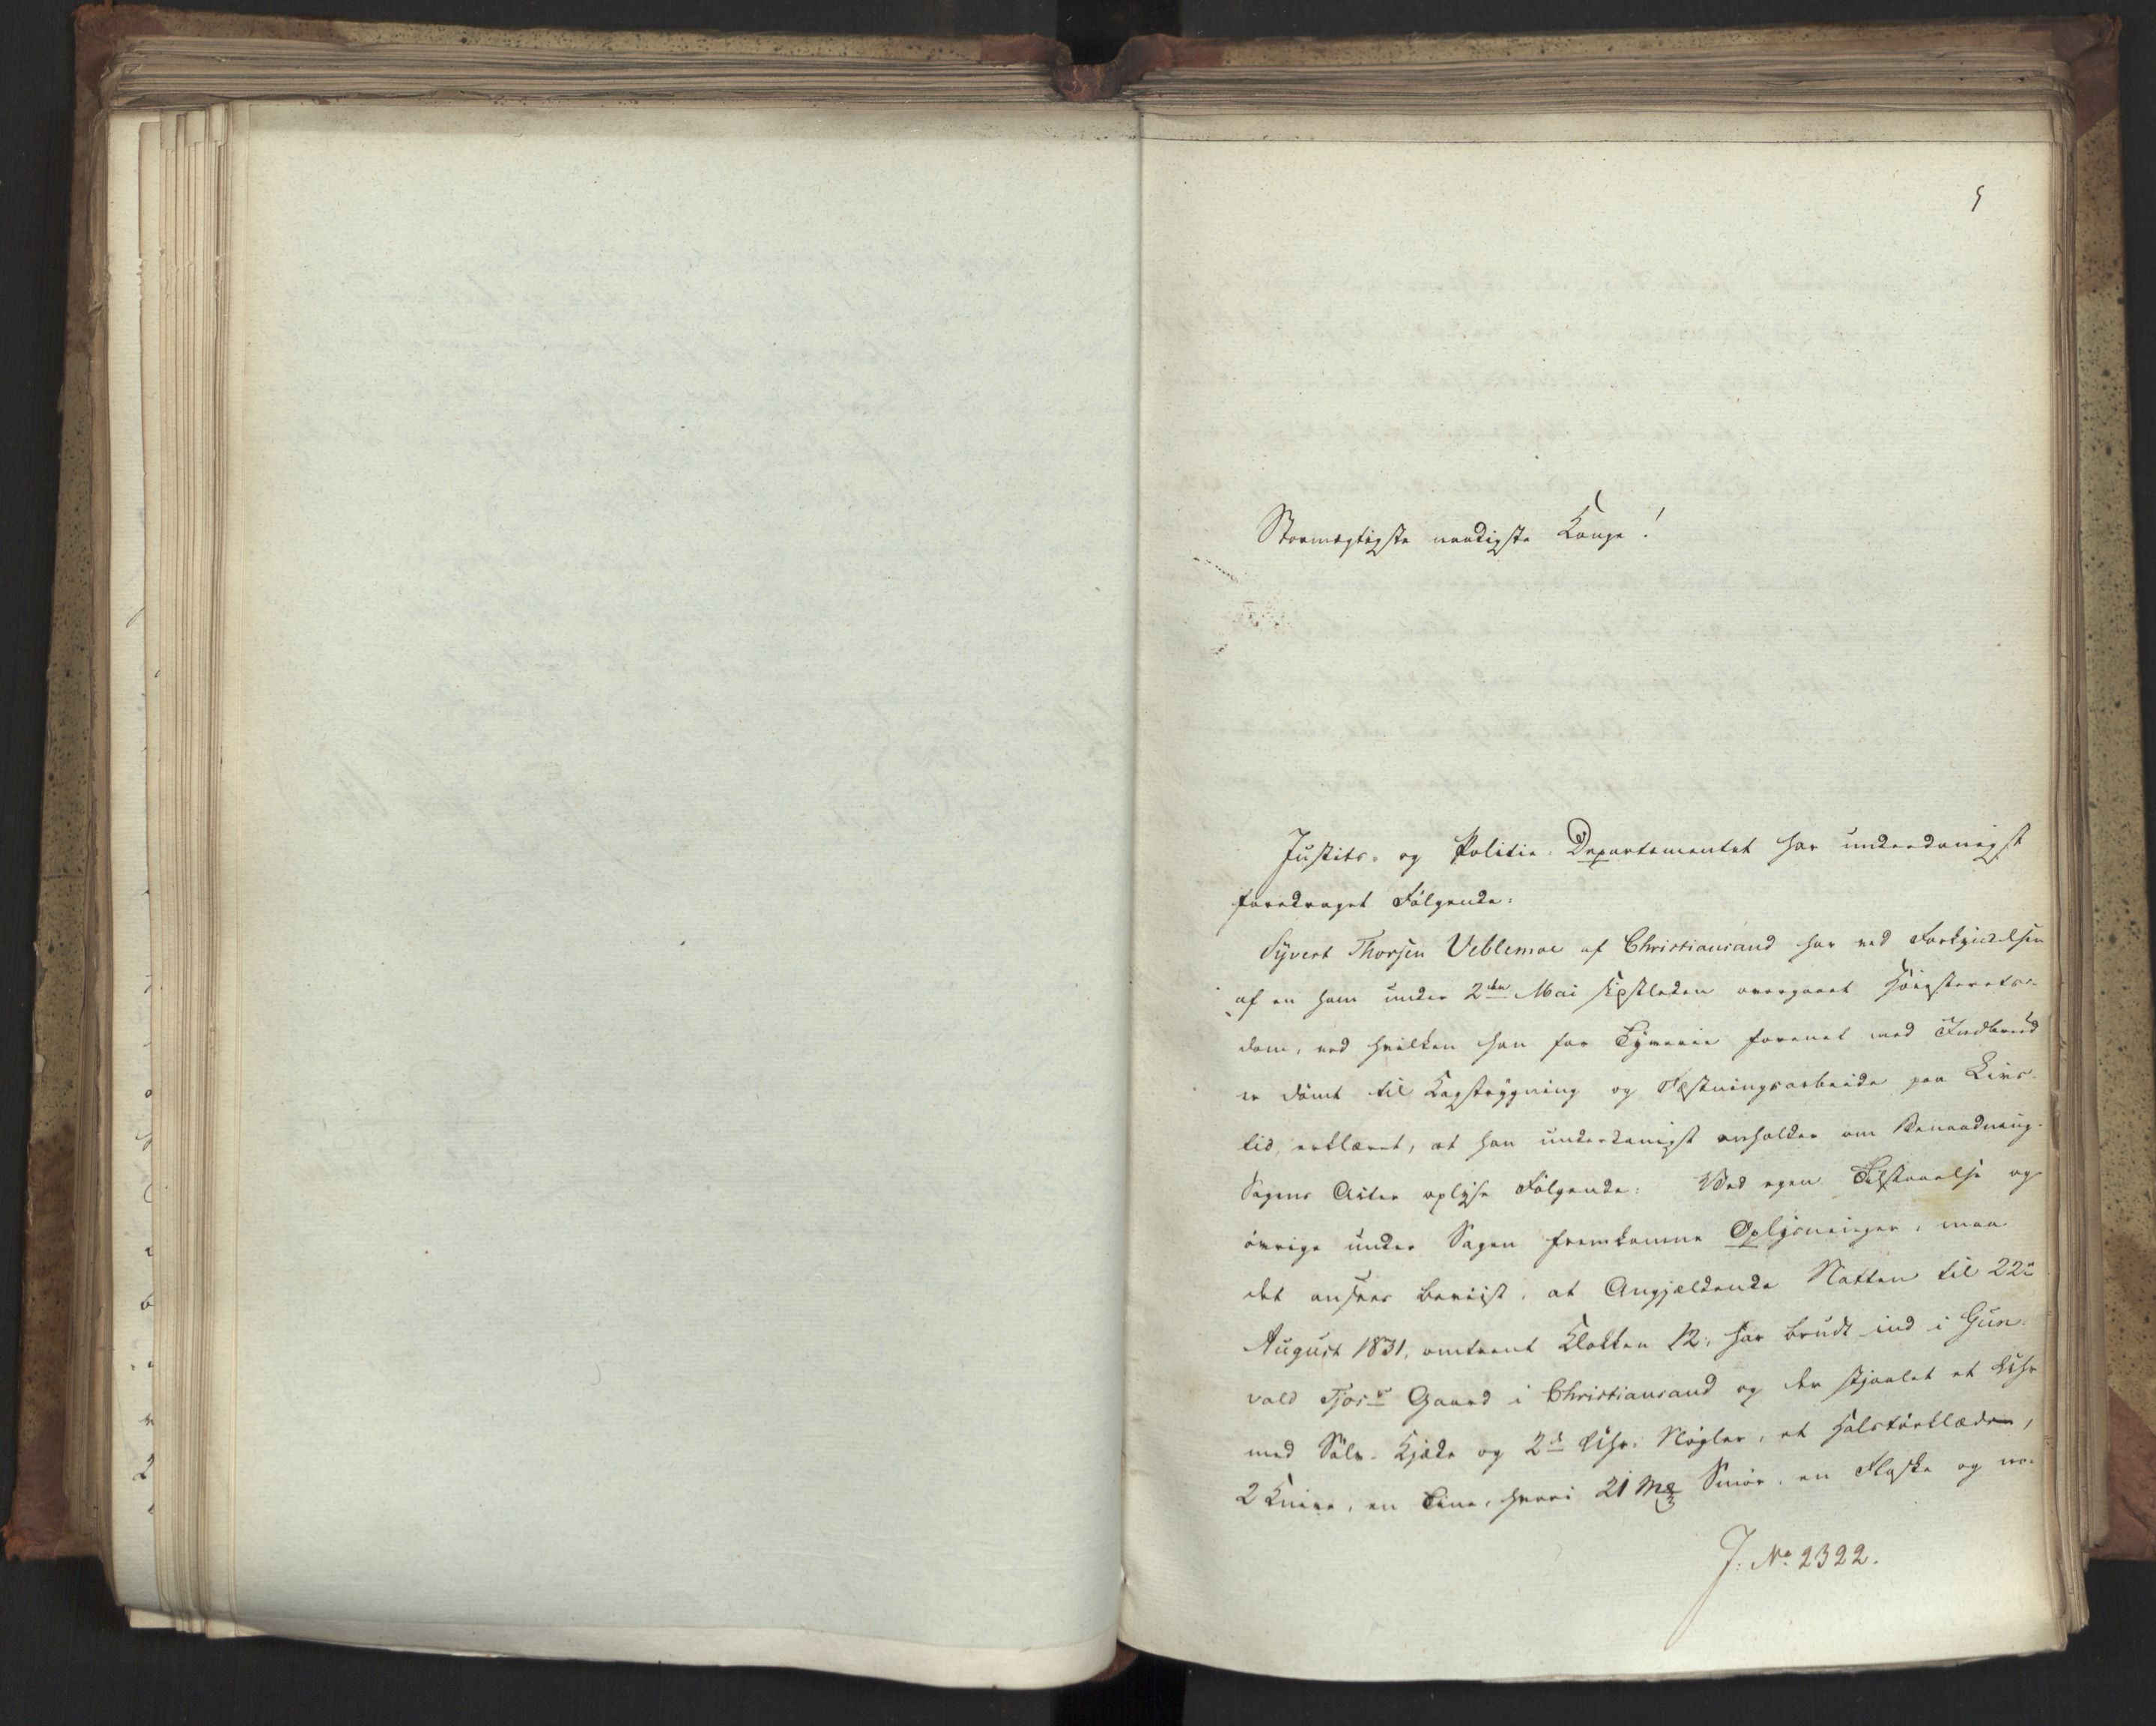 5
Stormægtigste naadigste Konge!
Justits- og Politie-Departementet har underdanigst
foredraget Følgende:
Syvert Thorsen Veblemoe af Christiansand har ved Forkyndelsen
af en ham under 2den Mai sidstleden overgaaet Høiesterets-
dom, ved hvilken han for Tyverie forenet med Indbrud
er dømt til Kagstrygning og Fæstningsarbeide paa Livs-
tid, erklæret, at han underdanigst anholder om Benaadning.
Sagens Acter oplyse Følgende: Ved egen Tilstaaelse og
øvrige under Sagen fremkomne Oplysninger, maa
det ansees beviist, at Angjældende Natten til 22de
August 1831, omtrent Klokken 12, har brudt ind i Gun-
vald Tjøs Gaard i Christiansand og der stjaalet et Uhr
med Sølv-Kjæde og 2de Uhr-Nøgler, et Halstørklæde,
2 Knive, en Tine, hvori 21 Mk Smør, en Flaske og no-
J. No 2322.